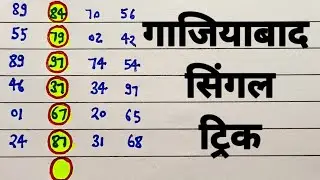 89 84 70 56
55 79 02 42
89 97 74 54
46 37 34 97
01 67 20 65
24 87 31 68
गाजियाबाद
सिंगल
ट्रिक